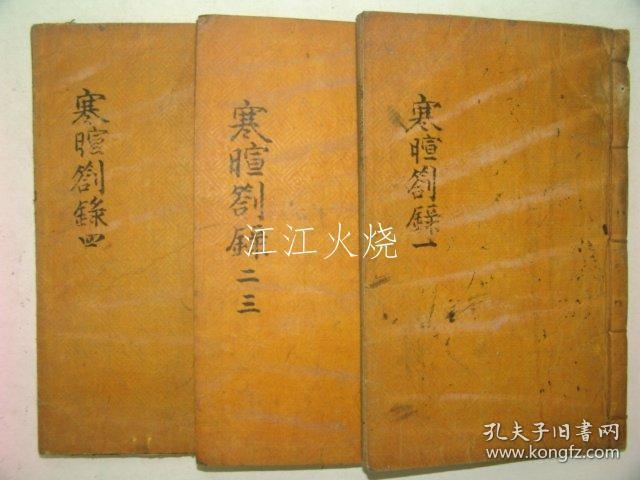 寒暄劄錄一
寒暄劄錄二三
寒暄劄錄四
江江火烧
孔夫子旧书网
www.kongfz.com